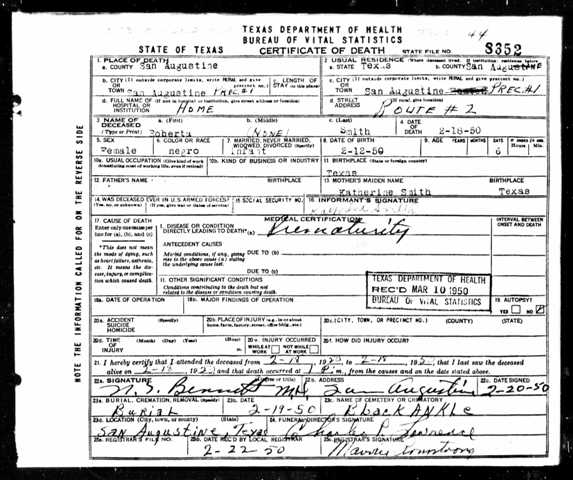 44
TEXAS DEPARTMENT OF HEALTH
BUREAU OF VITAL STATISTICS
STATE OF TEXAS CERTIFICATE OF DEATH STATE FILE NO. 8352
1. PLACE OF DEATH 2. USUAL RESIDENCE (Where deceased lived. If institution: residence before admission)
a. COUNTY San Augustine a. STATE Texas b. COUNTY San Augustine
b. CITY (If outside corporate limits, write RURAL and give precinct no.) c. LENGTH OF STAY c. CITY (If outside corporate limits, write RURAL and give precinct no.)
OR TOWN San Augustine PREC#1 OR TOWN San Augustine PREC#1
d. FULL NAME OF (If not in hospital or institution, give street address or location) d. STREET ADDRESS (If rural, give location)
HOSPITAL OR INSTITUTION HOME ROUTE #2
3. NAME OF DECEASED a. (First) b. (Middle) c. (Last) 4. DATE OF DEATH
(Type or Print) Roberta None Smith 2-18-50
5. SEX 6. COLOR OR RACE 7. MARRIED, NEVER MARRIED, WIDOWED, DIVORCED (Specify) 8. DATE OF BIRTH 9. AGE YEARS MONTHS DAYS
Female negro Infant 2-12-50 6
10a. USUAL OCCUPATION (Give kind of work done during most of working life, even if retired) 10b. KIND OF BUSINESS OR INDUSTRY 11. BIRTHPLACE (State or foreign country)
Texas
12. FATHER'S NAME BIRTHPLACE 13. MOTHER'S MAIDEN NAME BIRTHPLACE
Katherine Smith Texas
14. WAS DECEASED EVER IN U.S. ARMED FORCES? 15. SOCIAL SECURITY NO. 16. INFORMANT'S SIGNATURE
(Yes, no, or unknown) (If yes, give war or dates of service)
17. CAUSE OF DEATH MEDICAL CERTIFICATION INTERVAL BETWEEN ONSET AND DEATH
Enter only one cause per line for (a), (b), and (c) I. DISEASE OR CONDITION DIRECTLY LEADING TO DEATH* (a) Prematurity
*This does not mean the mode of dying, such as heart failure, asthenia, etc. It means the disease, injury, or complication which caused death.
ANTECEDENT CAUSES
Morbid conditions, if any, giving rise to the above cause (a) stating the underlying cause last.
DUE TO (b)
DUE TO (c)
II. OTHER SIGNIFICANT CONDITIONS
Conditions contributing to the death but not related to the disease or condition causing death.
TEXAS DEPARTMENT OF HEALTH
REC'D MAR 10 1950
BUREAU OF VITAL STATISTICS
18a. DATE OF OPERATION 18b. MAJOR FINDINGS OF OPERATION 19. AUTOPSY?
YES NO
20a. ACCIDENT SUICIDE HOMICIDE (Specify) 20b. PLACE OF INJURY (e.g., in or about home, farm, factory, street, office bldg., etc.) 20c. (CITY, TOWN, OR PRECINCT NO.) (COUNTY) (STATE)
20d. TIME OF INJURY (Month) (Day) (Year) (Hour) 20e. INJURY OCCURRED WHILE AT WORK NOT WHILE AT WORK 20f. HOW DID INJURY OCCUR?
21. I hereby certify that I attended the deceased from 2-18 to 2-18, that I last saw the deceased
alive on and that death occurred at m., from the causes and on the date stated above.
22a. SIGNATURE (Degree or title) 22b. ADDRESS 22c. DATE SIGNED
Bennett MD San Augustine 2-20-50
23a. BURIAL, CREMATION, REMOVAL (Specify) 23b. DATE 23c. NAME OF CEMETERY OR CREMATORY
Burial 2-19-50 Black ANKLE
23d. LOCATION (City, town, or county) (State) 24. FUNERAL DIRECTOR'S SIGNATURE
San Augustine Texas Charles Lawrence
25a. REGISTRAR'S FILE NO. 25b. DATE REC'D BY LOCAL REGISTRAR 25c. REGISTRAR'S SIGNATURE
2-22-50 Armstrong
NOTE THE INFORMATION CALLED FOR ON THE REVERSE SIDE